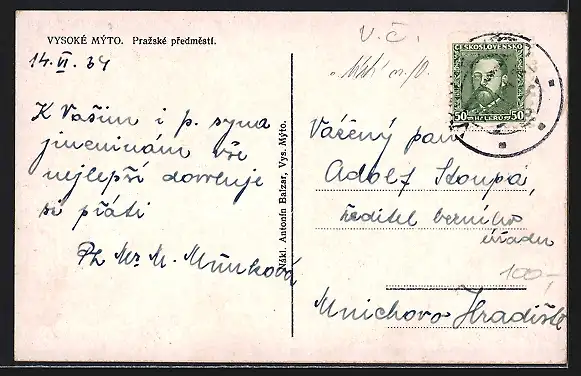 VYSOKÉ MÝTO. Pražské předměstí.
14. VI. 34
K Vašim i p. syna
jmeninám vše
nejlepší dovoluje
si přáti
Ph Mr M. Münková
Nákl. Antonín Balzar, Vys. Mýto.
V. Č.
ČESKOSLOVENSKO
50 50
Vážený pan
Adolf Stoupa,
ředitel berního
úřadu
100,-
Mnichovo Hradiště